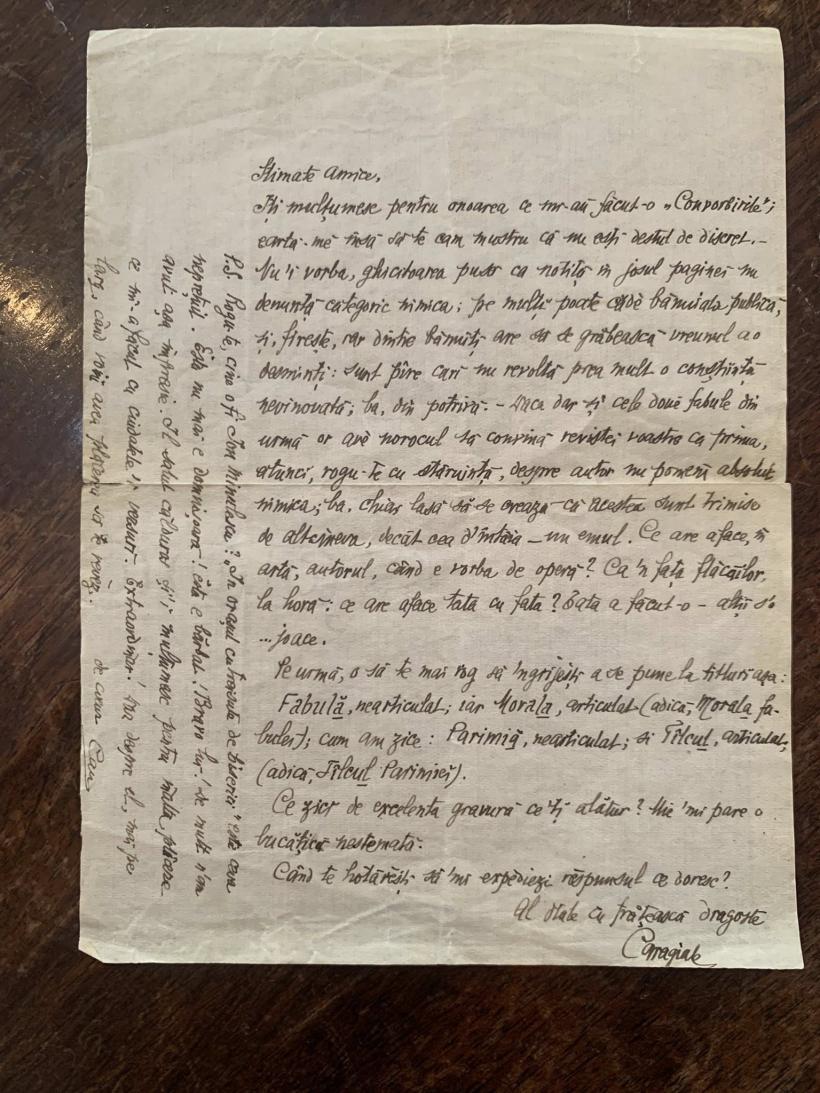 Stimate amice,
Îți mulțumesc pentru onoarea ce mi-au făcut-o „Convorbirile";
eartă-mĕ însă să te cam mustru că nu ești destul de discret.—
Nu'i vorba, ghicitoarea pusă ca notiță în josul paginei nu
denunță categoric nimica; pe mulți poate cădè bănuiala publică,
și, firește, car dintre bănuiți are să se grăbească vreunul a o
desminți: sunt pîre cari nu revoltă prea mult o conștiință
nevinovată; ba, din potrivă. — Daca dar și cele două fabule din
urmă or avè norocul să convină revistei voastre ca prima,
atunci, rogu-te cu stăruință, despre autor nu pomeni absolut
nimica; ba, chiar lasă să se crează că acestea sunt trimise
de altcineva, decât cea d'întâia — un emul. Ce are aface, în
artă, autorul, când e vorba de operă? Ca 'n fața flăcăilor,
la horă: ce are aface tata cu fata? Tata a făcut-o — alții s'o
...joace.
Pe urmă, o să te mai rog să îngrijești a se pune la titluri așa:
Fabulă, nearticulat; iar Morala, articulat (adică, Morala fa-
bulei); cum am zice: Parimiă, nearticulat; și Tîlcul, articulat,
(adică, Tîlcul Parimiei).
Ce zici de excelenta gravură ce'ți alătur? Mie 'mi pare o
bucățică nestemată.
Când te hotărăști să 'mi expediezi răspunsul ce doresc?
Al Dtale cu frățească dragoste
Caragiale
P.S. Rogu-te, cine o fi Ion Minulescu? „În orașul cu trei sute de biserici" este ceva
neprețuit. Ăsta nu mai e domnișoară! ăsta e bărbat! Bravo lui! de mult n'am
avut așa impresie. Îl salut călduros și'i mulțumesc pentru înalta plăcere
ce mi-a făcut cu ciudatele'i versuri. Extraordinar! Însă despre el, mai pe
larg, când voiu avea plăcerea să te revĕz.
de corsu Car.